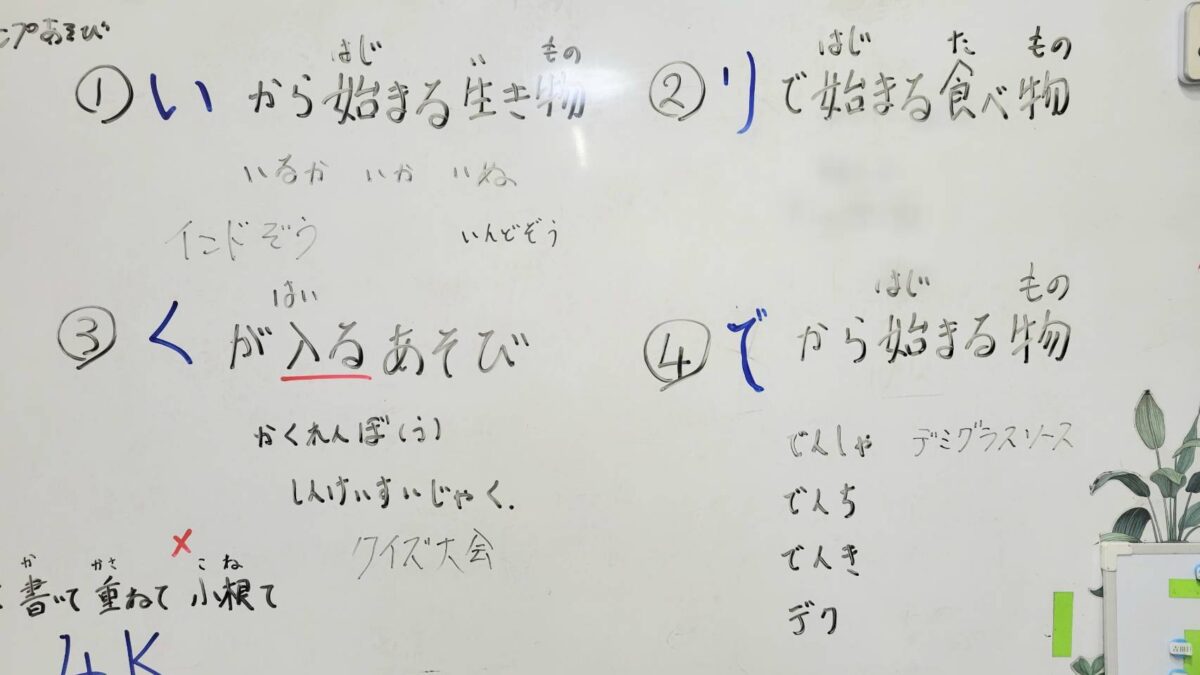 ンプあそび
① い から始まる生き物
はじ い もの
いるか いか いぬ
インドぞう いんどぞう
② り で始まる食べ物
はじ た もの
③ く が入るあそび
はい
かくれんぼ(う)
しんけいすいじゃく.
クイズ大会
④ で から始まる物
はじ もの
でんしゃ デミグラスソース
でんち
でんき
デク
×
か かさ こね
書いて重ねて小根て
4K